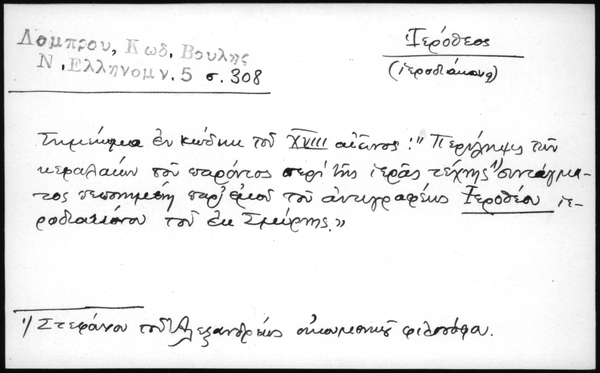 Λαμπρου, Κωδ. Βουλης
Ν. Ελληνομν. 5 σ. 308
Ἱερόθεος
(ἱεροδιάκονος)
Σημείωμα ἐν κώδικι τοῦ XVIII αἰῶνος: "Περίληψις τῶν
κεφαλαίων τοῦ παρόντος περὶ τῆς ἱερᾶς τέχνης ¹⁾ συντάγμα-
τος πεποιημένη παρ' ἐμοῦ τοῦ ἀντιγραφέως Ἱεροθέου ἱε-
ροδιακόνου τοῦ ἐκ Σμύρνης."
1) Στεφάνου τοῦ Ἀλεξανδρέως οἰκουμενικοῦ φιλοσόφου.